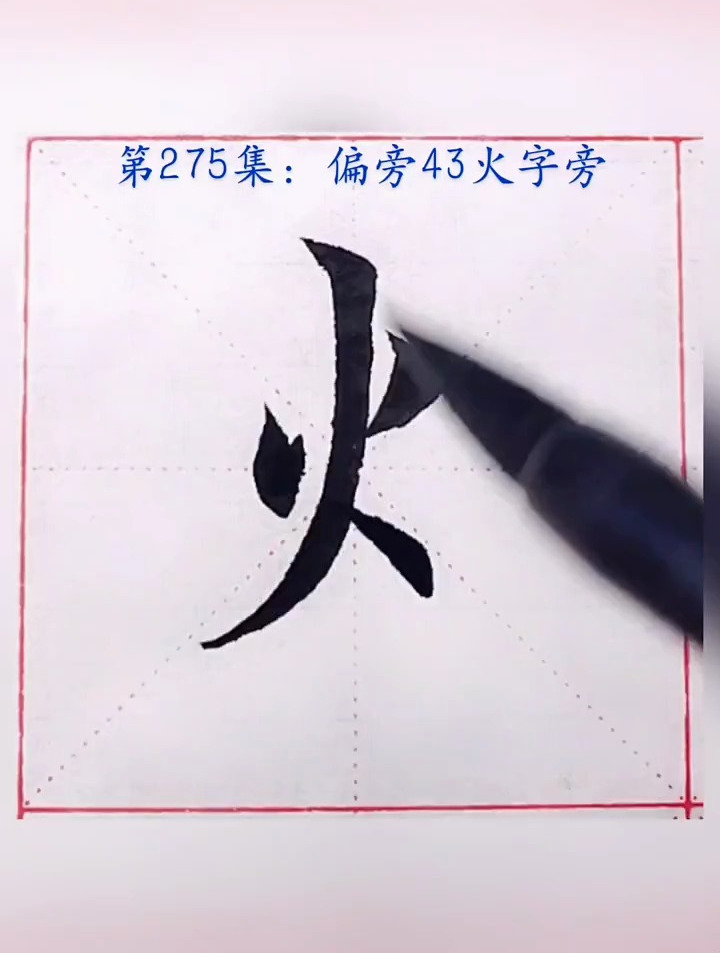 第275集：偏旁43火字旁
火